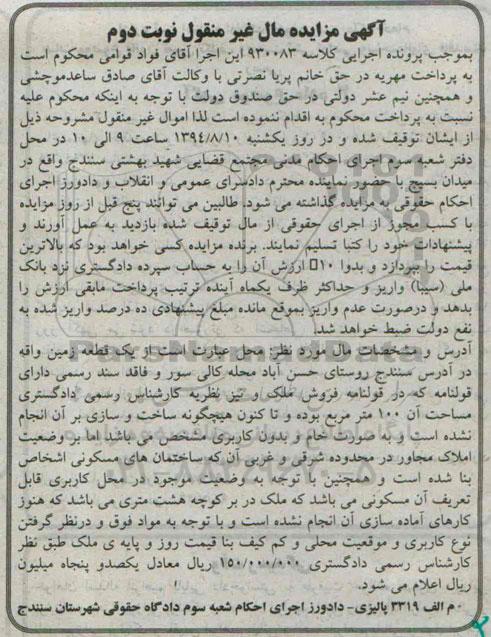 آگهی مزایده مال غیر منقول نوبت دوم
بموجب پرونده اجرایی کلاسه ۹۳۰۰۸۳ این اجرا آقای فواد قوامی محکوم است
به پرداخت مهریه در حق خانم پریا نصرتی با وکالت آقای صادق ساعدموچشی
و همچنین نیم عشر دولتی در حق صندوق دولت با توجه به اینکه محکوم علیه
نسبت به پرداخت محکوم به اقدام ننموده است لذا اموال غیر منقول مشروحه ذیل
از ایشان توقیف شده و در روز یکشنبه ۱۳۹۴/۸/۱۰ ساعت ۹ الی ۱۰ در محل
دفتر شعبه سوم اجرای احکام مدنی مجتمع قضایی شهید بهشتی سنندج واقع در
میدان بسیج با حضور نماینده محترم دادسرای عمومی و انقلاب و دادورز اجرای
احکام حقوقی به مزایده گذاشته می شود. طالبین می توانند پنج قبل از روز مزایده
با کسب مجوز از اجرای حقوقی از مال توقیف شده بازدید به عمل آورند و
پیشنهادات خود را کتبا تسلیم نمایند. برنده مزایده کسی خواهد بود که بالاترین
قیمت را بپردازد و بدوا ۱۰٪ ارزش آن را به حساب سپرده دادگستری نزد بانک
ملی (سیبا) واریز و حداکثر ظرف یکماه آینده ترتیب پرداخت مابقی ارزش را
بدهد و درصورت عدم واریز بموقع مانده مبلغ پیشنهادی ده درصد واریز شده به
نفع دولت ضبط خواهد شد.
آدرس و مشخصات مال مورد نظر: محل عبارت است از یک قطعه زمین واقه
در آدرس سنندج روستای حسن آباد محله کالی سور و فاقد سند رسمی دارای
قولنامه که در قولنامه فروش ملک و نیز نظریه کارشناس رسمی دادگستری
مساحت آن ۱۰۰ متر مربع بوده و تا کنون هیچگونه ساخت و سازی بر آن انجام
نشده است و به صورت خام و بدون کاربری مشخص می باشد اما بر وضعیت
املاک مجاور در محدوده شرقی و غربی آن که ساختمان های مسکونی اشخاص
بنا شده است و همچنین با توجه به وضعیت موجود در محل کاربری قابل
تعریف آن مسکونی می باشد که ملک در بر کوچه هشت متری می باشد که هنوز
کارهای آماده سازی آن انجام نشده است و با توجه به مواد فوق و درنظر گرفتن
نوع کاربری و موقعیت محلی و کم کیف بنا قیمت روز و پایه ی ملک طبق نظر
کارشناس رسمی دادگستری ۱۵۰/۰۰۰/۰۰۰ ریال معادل یکصدو پنجاه میلیون
ریال اعلام می شود.
م الف ۳۳۱۹ پالیزی- دادورز اجرای احکام شعبه سوم دادگاه حقوقی شهرستان سنندج